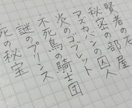 賢者の石
秘密の部屋
アズカバンの囚人
炎のゴブレット
不死鳥の騎士団
謎のプリンス
死の秘宝